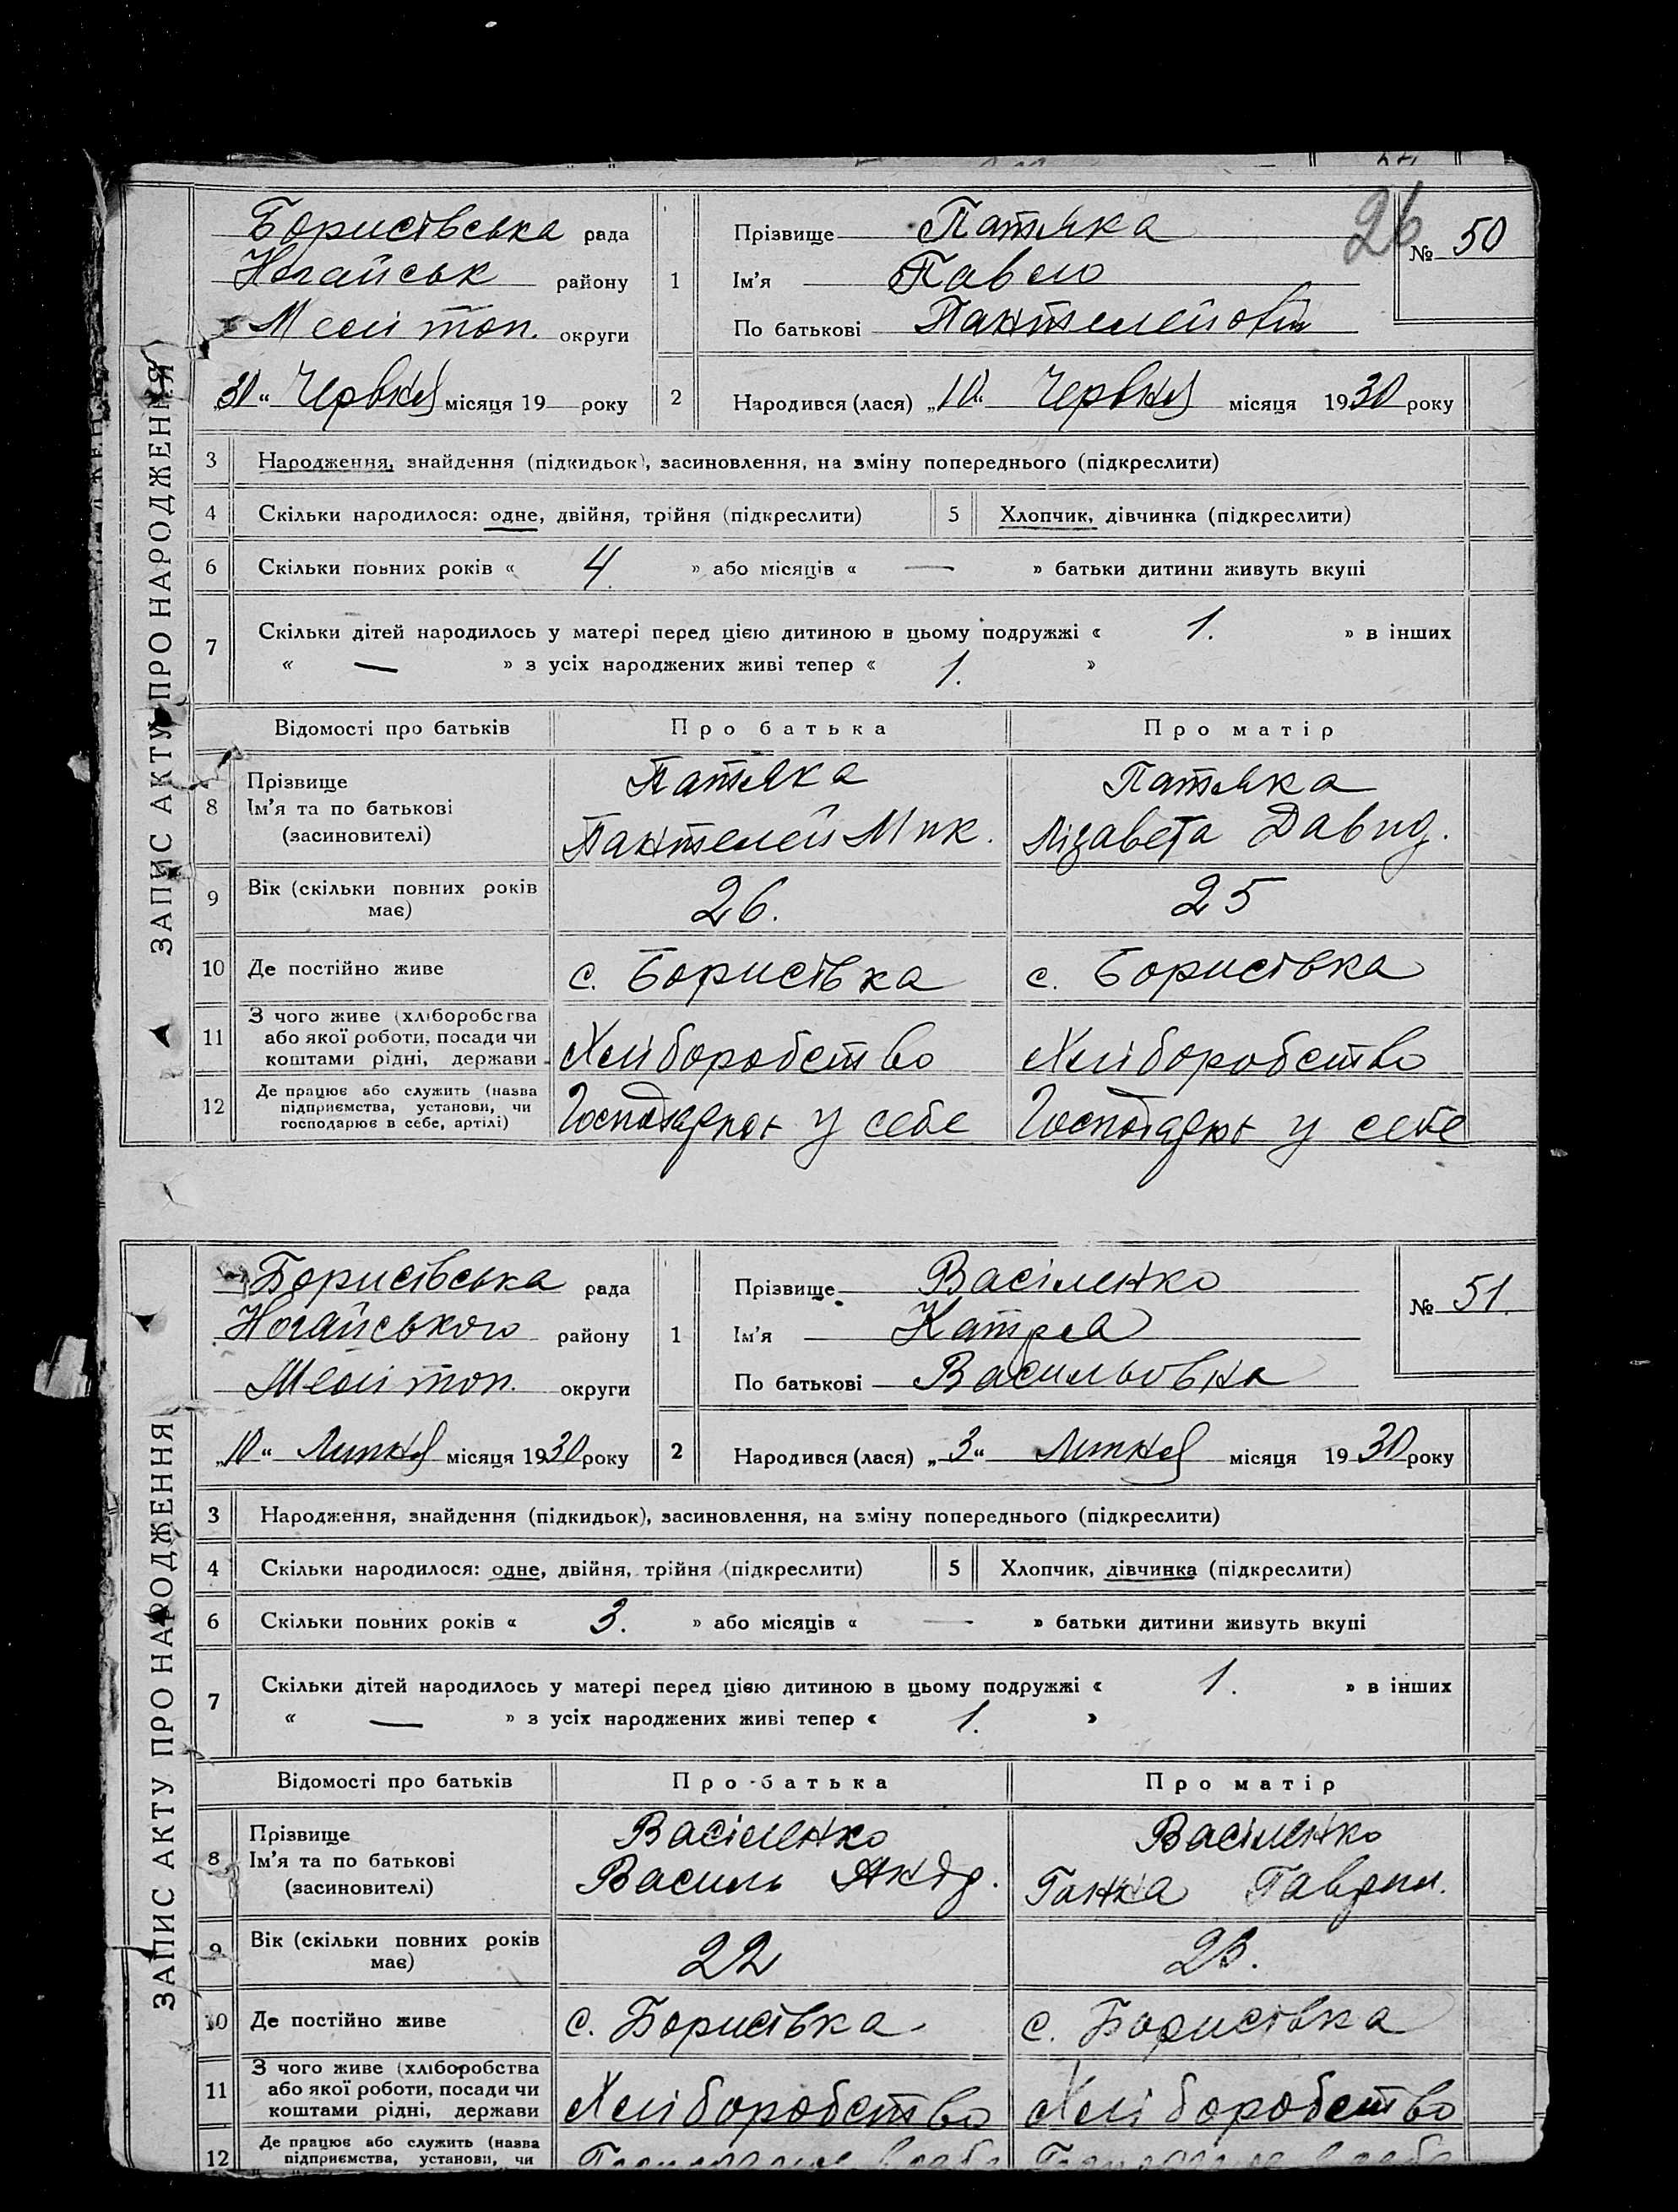 26
№ 50
ЗАПИС АКТУ ПРО НАРОДЖЕННЯ
Борисівська рада
Ногайськ району
Мелітоп. округи
1
Прізвище Патляка
Ім'я Павло
По батькові Пантелейович
„30“ Червня місяця 19 року
2
Народився (лася) „10“ Червня місяця 1930 року
3 Народження, знайдення (підкидьок), засиновлення, на зміну попереднього (підкреслити)
4 Скільки народилося: одне, двійня, трійня (підкреслити) 5 Хлопчик, дівчинка (підкреслити)
6 Скільки повних років « 4. » або місяців « — » батьки дитини живуть вкупі
7 Скільки дітей народилось у матері перед цією дитиною в цьому подружжі « 1. » в інших
« — » з усіх народжених живі тепер « 1. »
Відомості про батьків Про батька Про матір
8 Прізвище Патляка Патляка
Ім'я та по батькові Пантелей Мик. Лізавета Давид.
(засиновителі)
9 Вік (скільки повних років має) 26. 25
10 Де постійно живе с. Борисівка с. Борисівка
11 З чого живе (хліборобства
або якої роботи, посади чи
коштами рідні, держави Хліборобство Хліборобство
12 Де працює або служить (назва
підприємства, установи, чи
господарює в себе, артілі) у себе у себе
ЗАПИС АКТУ ПРО НАРОДЖЕННЯ
Борисівська рада
Ногайського району
Мелітоп. округи
1
Прізвище Васіленко
Ім'я Катря
По батькові Васильовна
№ 51.
„10“ Липня місяця 1930 року
2
Народився (лася) „3“ Липня місяця 1930 року
3 Народження, знайдення (підкидьок), засиновлення, на зміну попереднього (підкреслити)
4 Скільки народилося: одне, двійня, трійня (підкреслити) 5 Хлопчик, дівчинка (підкреслити)
6 Скільки повних років « 3. » або місяців « — » батьки дитини живуть вкупі
7 Скільки дітей народилось у матері перед цією дитиною в цьому подружжі « 1. » в інших
« — » з усіх народжених живі тепер « 1. »
Відомості про батьків Про батька Про матір
8 Прізвище Васіленко Васіленко
Ім'я та по батькові Василь Андр. Ганна Гаврил.
(засиновителі)
9 Вік (скільки повних років має) 22 23.
10 Де постійно живе с. Борисівка с. Борисівка
11 З чого живе (хліборобства
або якої роботи, посади чи
коштами рідні, держави Хліборобство Хліборобство
12 Де працює або служить (назва
підприємства, установи, чи